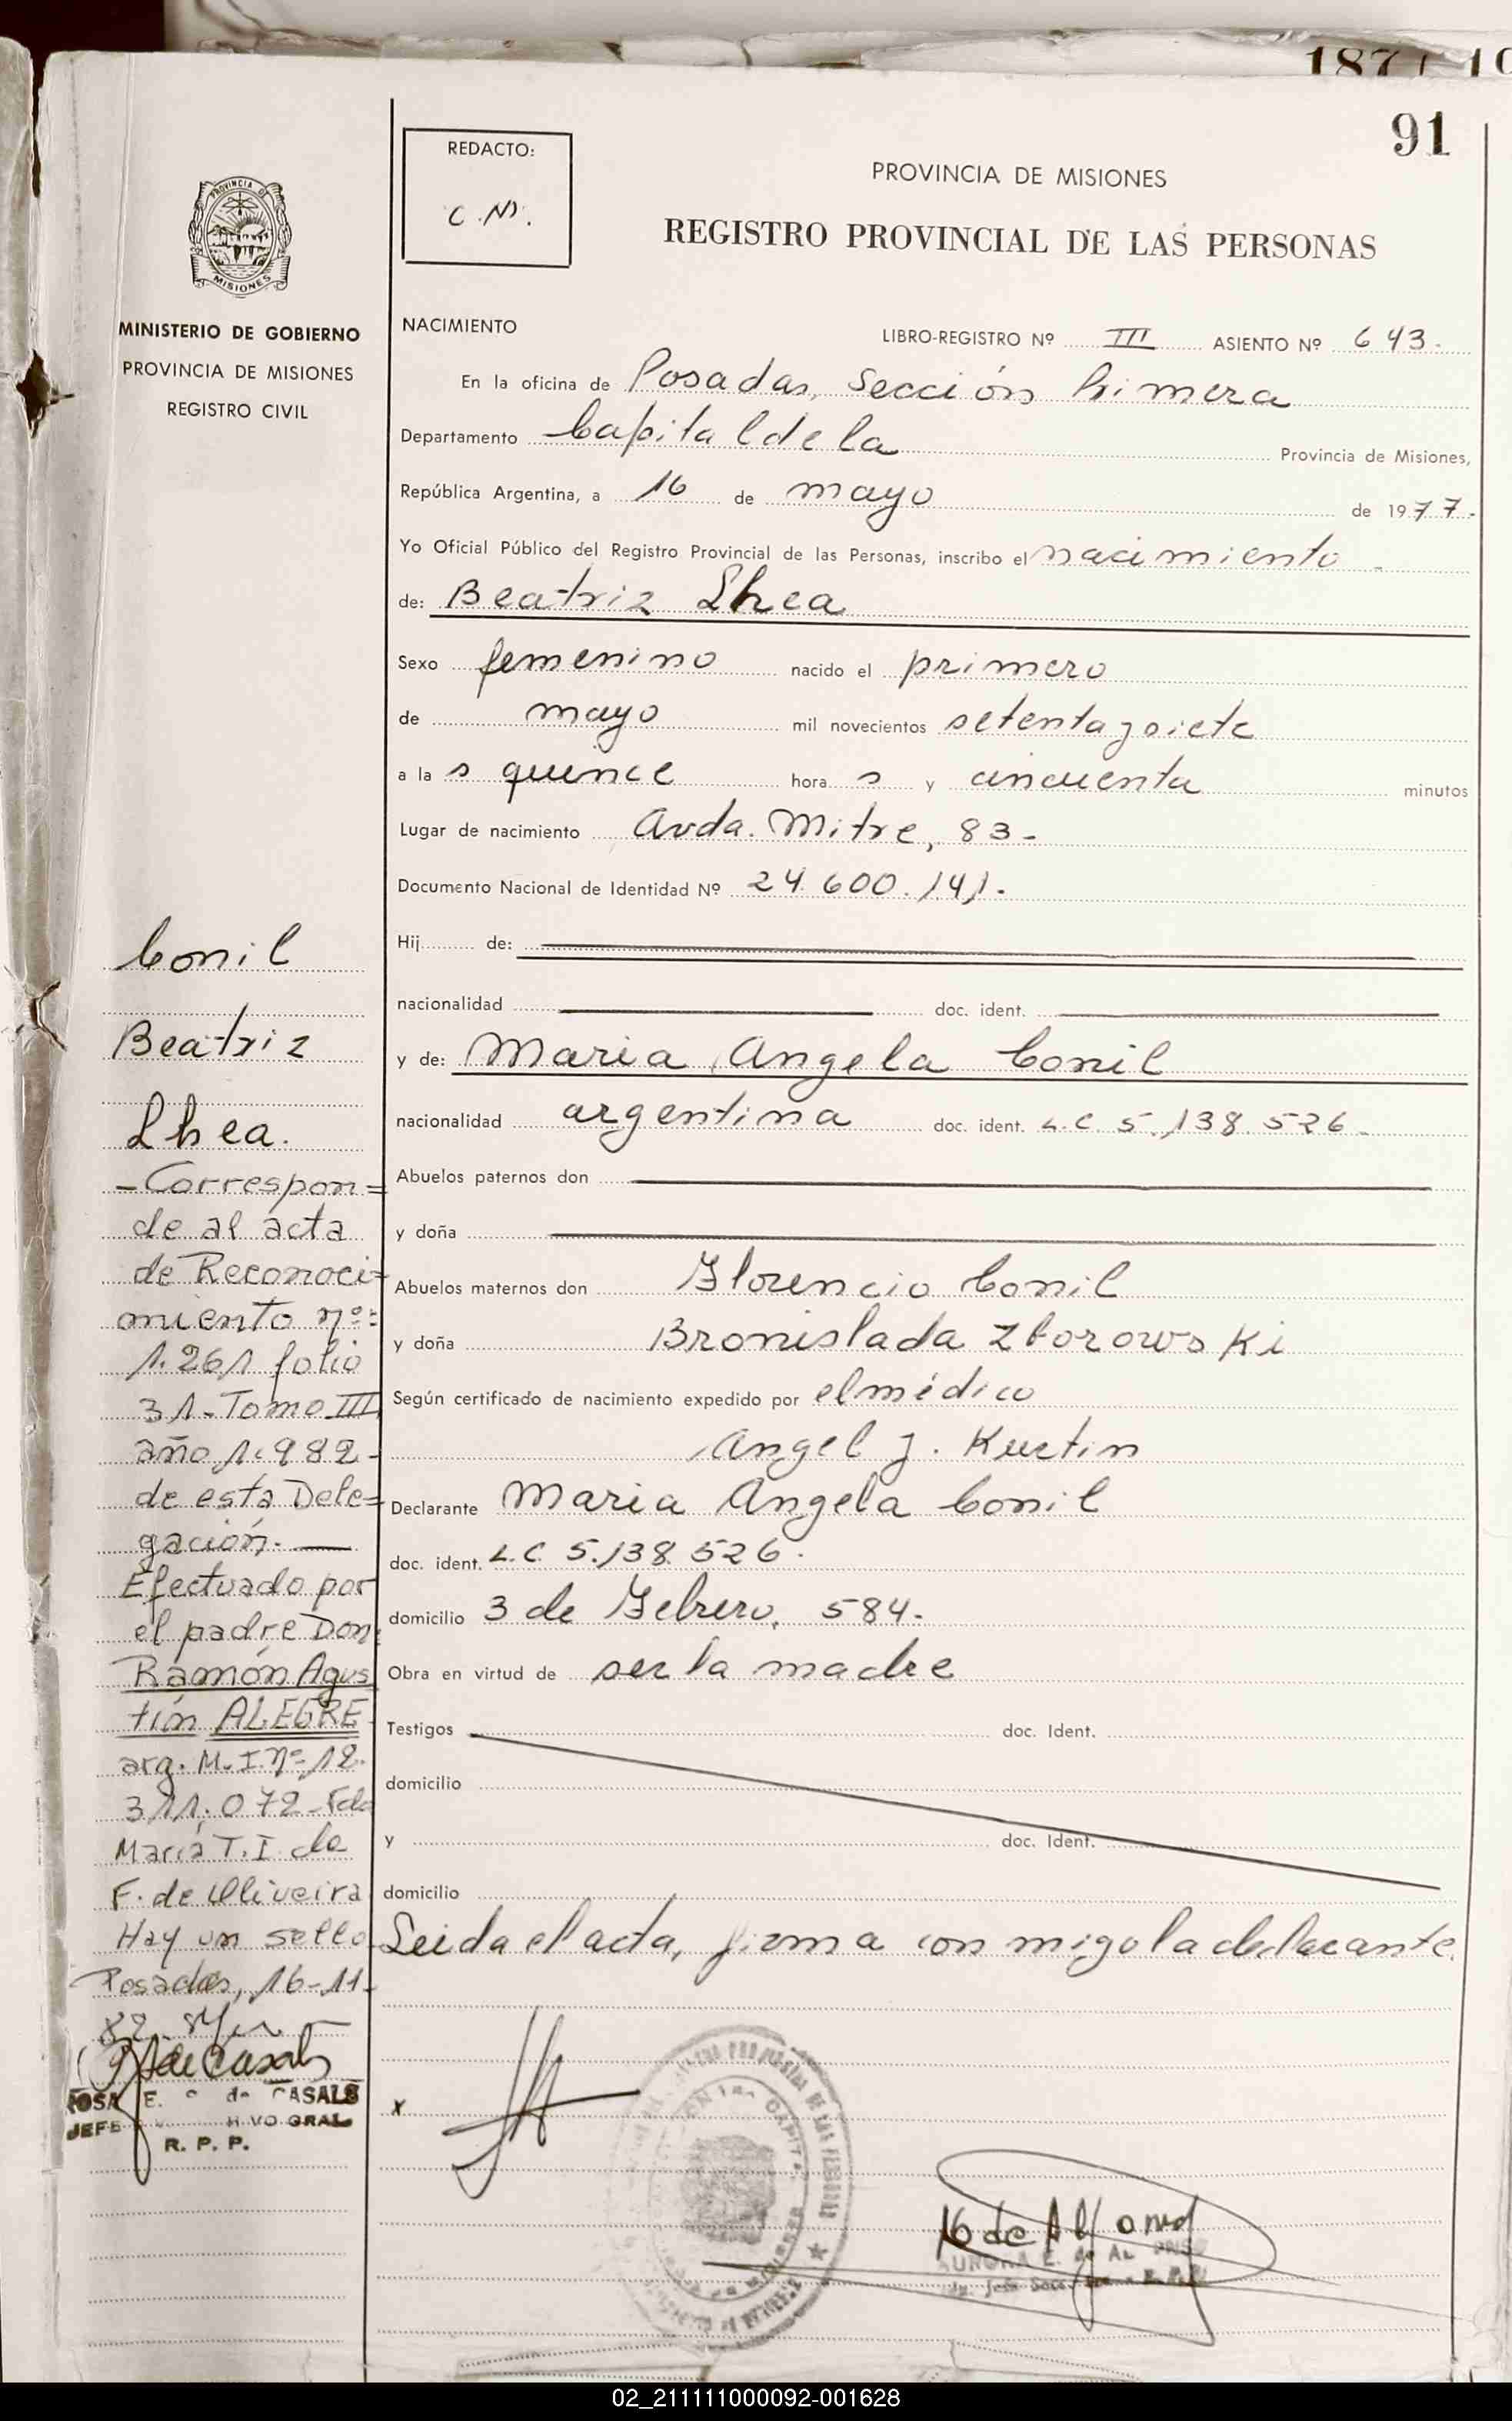 187
91
REDACTO:
C.N.
PROVINCIA DE MISIONES
REGISTRO PROVINCIAL DE LAS PERSONAS
PROVINCIA DE
MISIONES
MINISTERIO DE GOBIERNO
PROVINCIA DE MISIONES
REGISTRO CIVIL
NACIMIENTO
LIBRO-REGISTRO Nº III ASIENTO Nº 643.
En la oficina de Posadas, Sección Primera
Departamento Capital de la Provincia de Misiones,
República Argentina, a 16 de mayo de 1977.-
Yo Oficial Público del Registro Provincial de las Personas, inscribo el nacimiento
de: Beatriz Lhea
Sexo femenino nacido el primero
de mayo mil novecientos setenta y siete
a la s quince hora s y cincuenta minutos
Lugar de nacimiento Avda. Mitre, 83-
Documento Nacional de Identidad Nº 24.600.141.
Hij de:
nacionalidad doc. ident.
y de: Maria Angela Conil
nacionalidad argentina doc. ident. L.C. 5.138.526.
Abuelos paternos don
y doña
Abuelos maternos don Florencio Conil
y doña Bronislada Zborowski
Según certificado de nacimiento expedido por el médico
Angel J. Kurtin
Declarante Maria Angela Conil
doc. ident. L.C. 5.138.526.
domicilio 3 de Febrero, 584.
Obra en virtud de ser la madre
Testigos doc. Ident.
domicilio
y doc. Ident.
domicilio
Leida el acta, firma con migo la declarante.
x
Conil
Beatriz
Lhea.
-Correspon=
de al acta
de Reconoci=
miento nº:
1.261 folio
31-Tomo III
año 1.982-
de esta Dele=
gación.-
Efectuado por
el padre Don:
Ramón Agus
tín ALEGRE
arg. M.I.Nº 12.
311.072-Fdo
María T.I. de
F. de Oliveira
Hay un sello
Posadas, 16-11-
82.
de Casals
ROSA E. de CASALS
JEFE GRAL
R. P. P.
de Alfonso
AURORA E. de AL ONSO
02_211111000092-001628